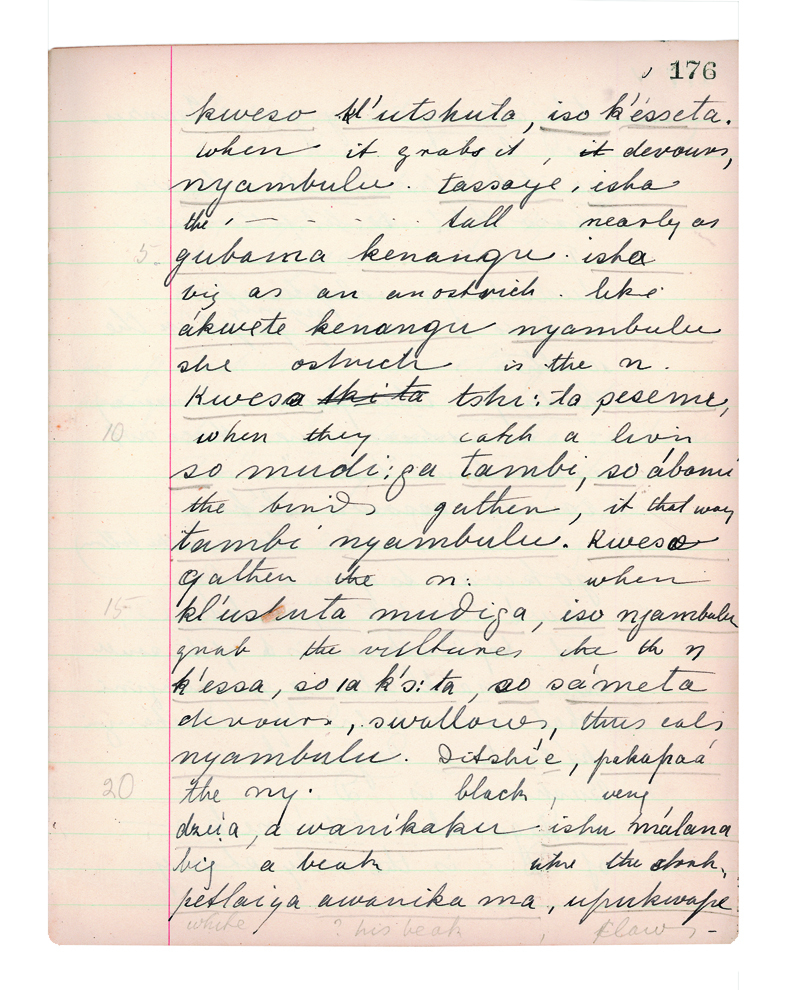 176
kweso kl'utshuta, iso k'ésseta.
when it grabs it, it devours,
nyambulu. tassaye, isha
the - - - - tall nearly as
5. gubama kenangu. isha
big as an an ostrich. like
ákwete kenangu nyambulu
she ostrich is the n.
Kweso tshi:ta peseme,
10 when they catch a livin
so mudi:ga tambi, so ábomi
the birds gather, it that way
tambi nyambulu. Kweso
gather the n. when
15 kl'ushuta mudiga, iso njambulu
grab the vultures he th n
k'essa, so ia k's:ta, so sa'meta
devours, swallows, thus eats
nyambulu. Ditshi'e, pakapaá
20 the ny. black, very
dzeia, a wanikaku ishu málana
big a beak like the stork,
petlaiya awanika ma, upukwape
white ? his beak, claws -